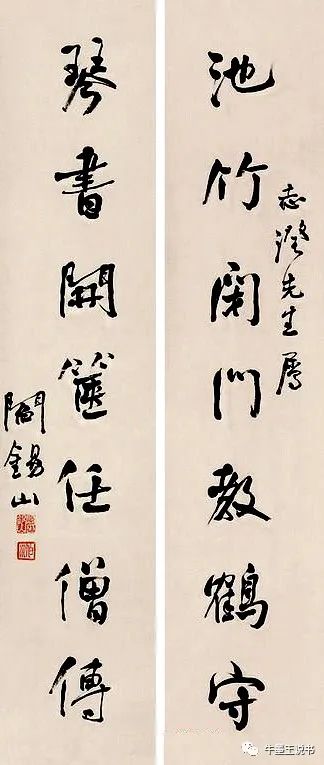 池竹閉門教鶴守
志澄先生屬
琴書開篋任僧傳
閻錫山
牛墨王说书